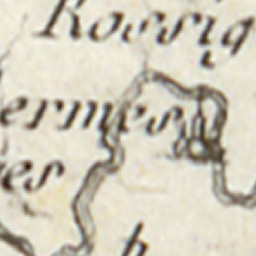 Rossiq
ermes
es
h